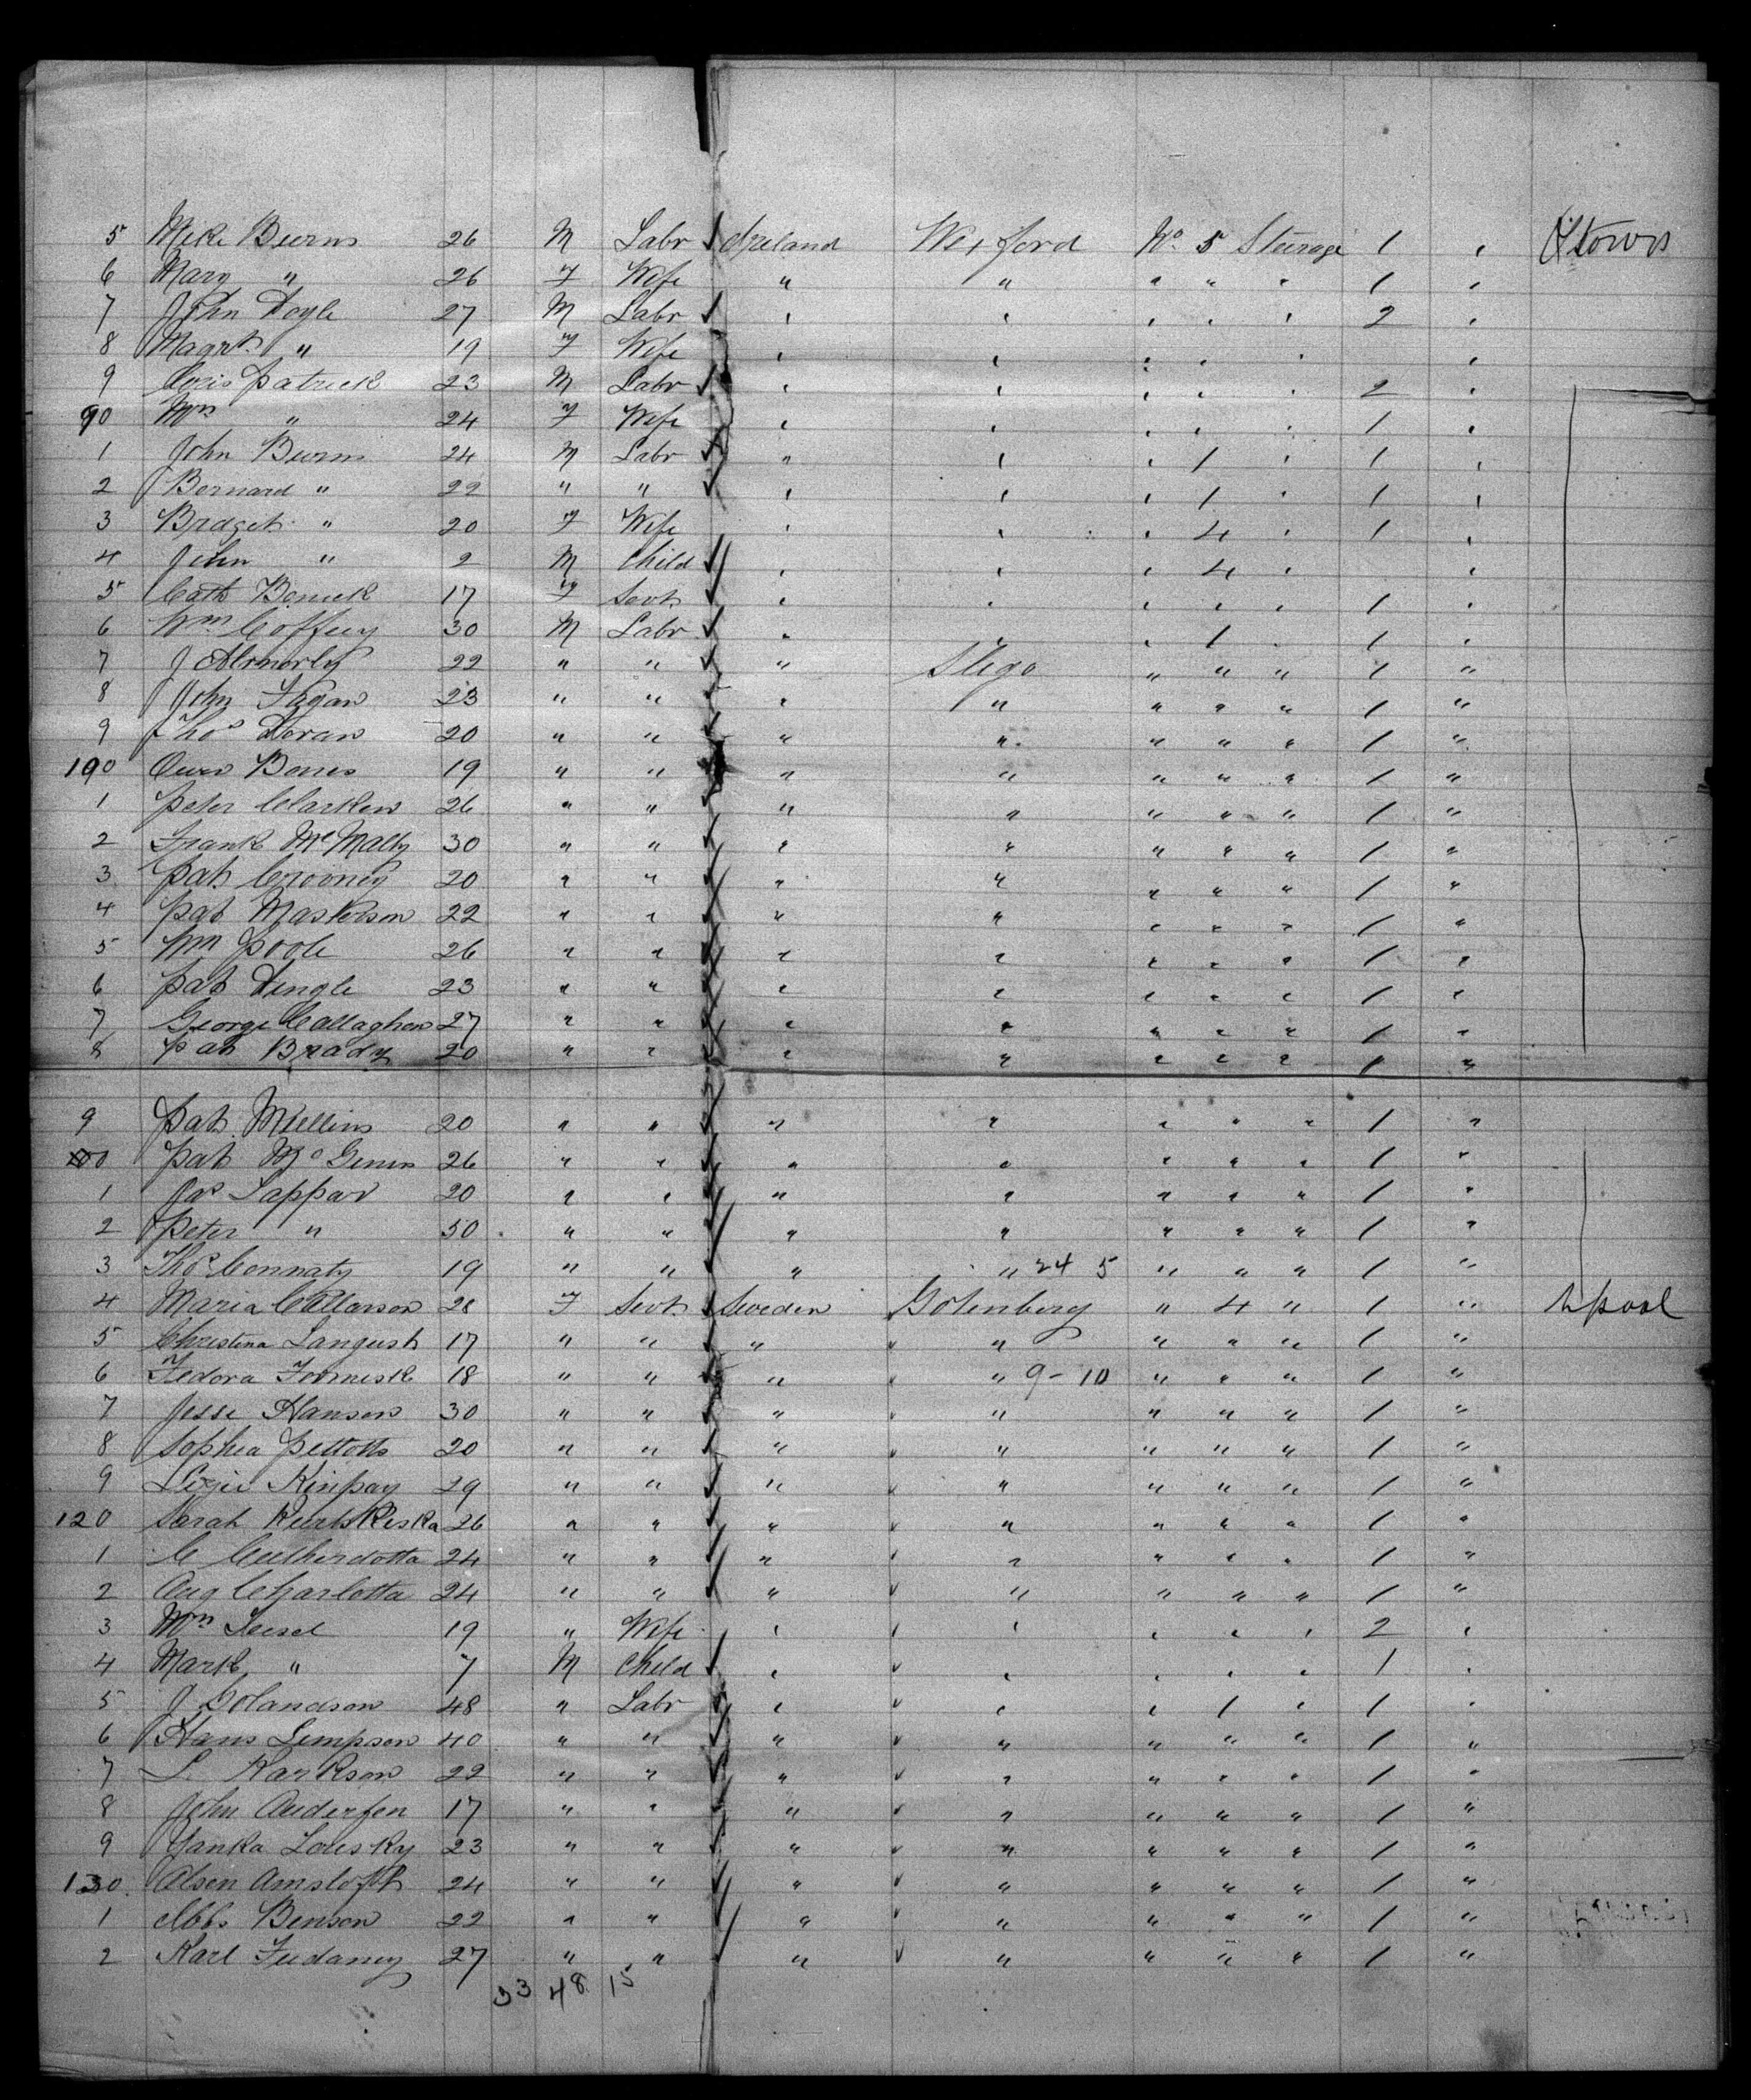 5 Mike Burns 26 M Labr Ireland Wexford No 5 Steerage 1 " Qtown
6 Mary " 26 F Wife " " " " " 1 "
7 John Doyle 27 M Labr " " " " " 2 "
8 Magrt " 19 F Wife " " " " " "
9 Cris patrick 23 M Labr " " " " " 2 "
90 Mrs " 24 F Wife " " " " " 1 "
1 John Burns 24 M Labr " " " 1 " 1 "
2 Bernard " 22 " " " " " 1 " 1 "
3 Bridget " 20 F Wife " " " 4 " 1 "
4 John " 2 M Child " " " 4 "
5 Cath 17 F Servt " " " " " 1 "
6 Wm Coffey 30 M Labr " " " 1 " 1 "
7 J 22 " " " Sligo " " " 1 "
8 John Fagan 23 " " " " " " " 1 "
9 Thos Doran 20 " " " " " " " 1 "
100 Owen 19 " " " " " " " 1 "
1 Peter Clarken 26 " " " " " " " 1 "
2 Frank McMalty 30 " " " " " " " 1 "
3 Pat Crooney 20 " " " " " " " 1 "
4 Pat Masterson 22 " " " " " " " 1 "
5 Wm Poole 26 " " " " " " " 1 "
6 Pat Dingle 23 " " " " " " " 1 "
7 George Callaghan 27 " " " " " " " 1 "
8 Pat Brady 20 " " " " " " " 1 "
9 Pat Mullins 20 " " " " " " " 1 "
Pat 26 " " " " " " " 1 "
1 Jas Sappar 20 " " " " " " " 1 "
2 Peter " 50 " " " " " " " 1 "
3 Thos Connaty 19 " " " " 24 5 " " " 1 "
4 Maria 28 F Servt Sweden Gotenberg " 4 " 1 " Lpool
5 Christina Langust 17 " " " " " " " 1 "
6 Fedora 18 " " " " 9-10 " " " 1 "
7 Jesse Hanson 30 " " " " " " " 1 "
8 Sophia 20 " " " " " " " 1 "
9 Lizzie Kinpay 29 " " " " " " " 1 "
120 Sarah 26 " " " " " " " 1 "
1 C 24 " " " " " " " 1 "
2 Aug Charlotta 24 " " " " " " " 1 "
3 Mrs 19 " Wife " " " " " 2 "
4 Mark " 7 M Child " " " " " 1 "
5 J 48 " Labr " " " 1 " 1 "
6 Hans Simpson 40 " " " " " " " 1 "
7 Karkson 22 " " " " " " " 1 "
8 John Andersen 17 " " " " " " " 1 "
9 Yanka Lousky 23 " " " " " " " 1 "
130 Olsen 24 " " " " " " " 1 "
1 Benson 22 " " " " " " " 1 "
2 Karl 27 " " " " " " " 1 "
33 48 15